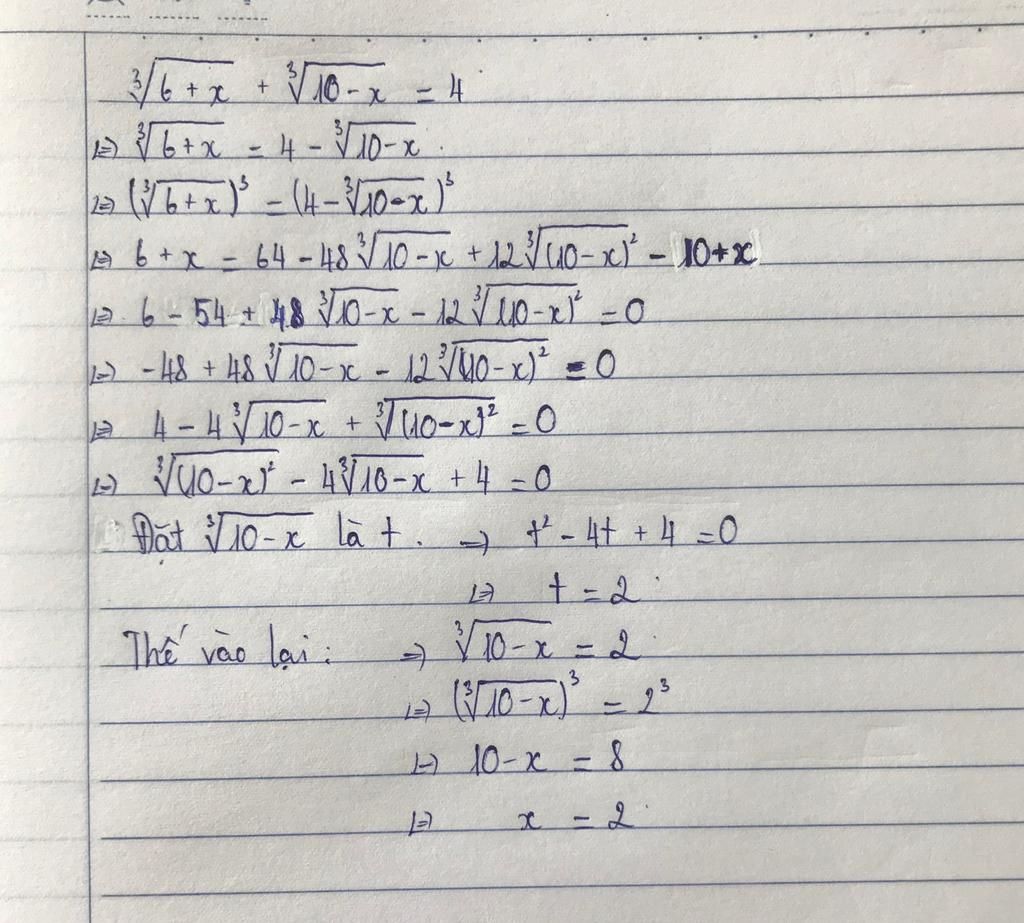 ∛(6 + x) + ∛(10 - x) = 4
⇔ ∛(6 + x) = 4 - ∛(10 - x)
⇔ (∛(6 + x))³ = (4 - ∛(10 - x))³
⇔ 6 + x = 64 - 48∛(10 - x) + 12∛((10 - x)²) - 10 + x
⇔ 6 - 54 + 48∛(10 - x) - 12∛((10 - x)²) = 0
⇔ -48 + 48∛(10 - x) - 12∛((10 - x)²) = 0
⇔ 4 - 4∛(10 - x) + ∛((10 - x)²) = 0
⇔ ∛((10 - x)²) - 4∛(10 - x) + 4 = 0
Đặt ∛(10 - x) là t. ⇒ t² - 4t + 4 = 0
⇔ t = 2
Thế vào lại: ⇒ ∛(10 - x) = 2
⇔ (∛(10 - x))³ = 2³
⇔ 10 - x = 8
⇔ x = 2